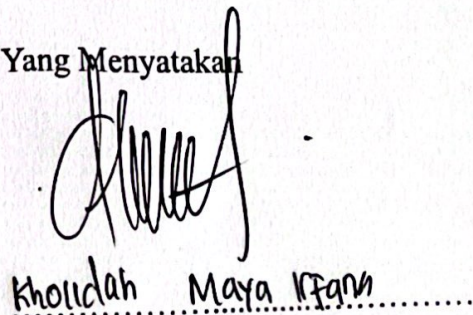 Yang Menyatakan
Kholidah Maya Irfana